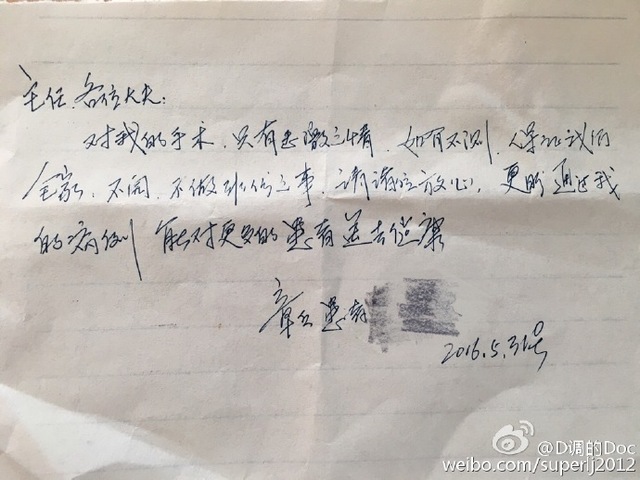 主任.各位大夫:
对我的手术,只有感激之情,如有不测,保证我们
全家,不闹,不做非份之事,请诸位放心,更盼通过我
的病例 能对更多的患者送去健康
章丘患者
2016.5.31号
@D调的Doc
weibo.com/superlj2012